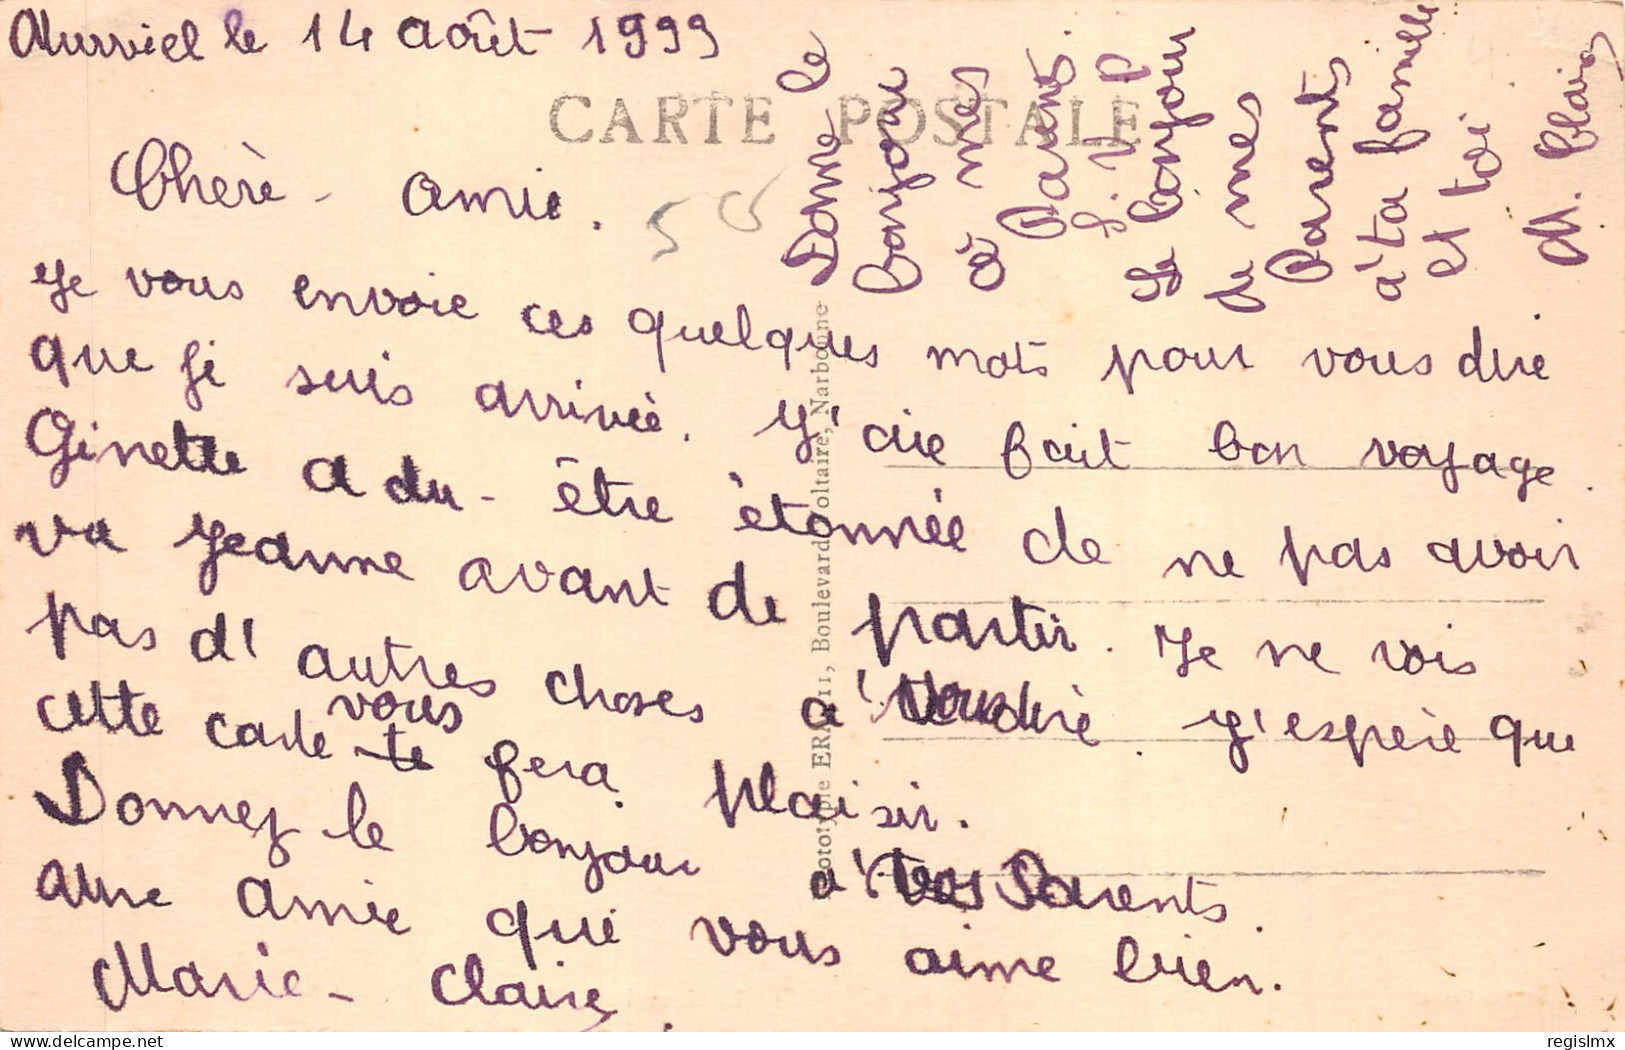 Murviel le 14 août 1999
CARTE POSTALE
Chère - amie.
Je vous envoie ces quelques mots pour vous dire
que je suis arrivée. J'aie fait bon voyage.
Ginette a du - être étonnée de ne pas avoir
vu Jeanne avant de partir. Je ne vois
pas d'autres choses a' vous dire. J'espère que
cette carte te vous fera plaisir.
Donnez le bonjour a' vos Parents.
une amie qui vous aime bien.
Marie - Claire.
Donne le
bonjour
à mes
Parents.
S. V P
Le bonjour
de mes
Parents
à ta famille
et toi
M. Claire
Boulevard Voltaire, Narbonne
50
regislmx